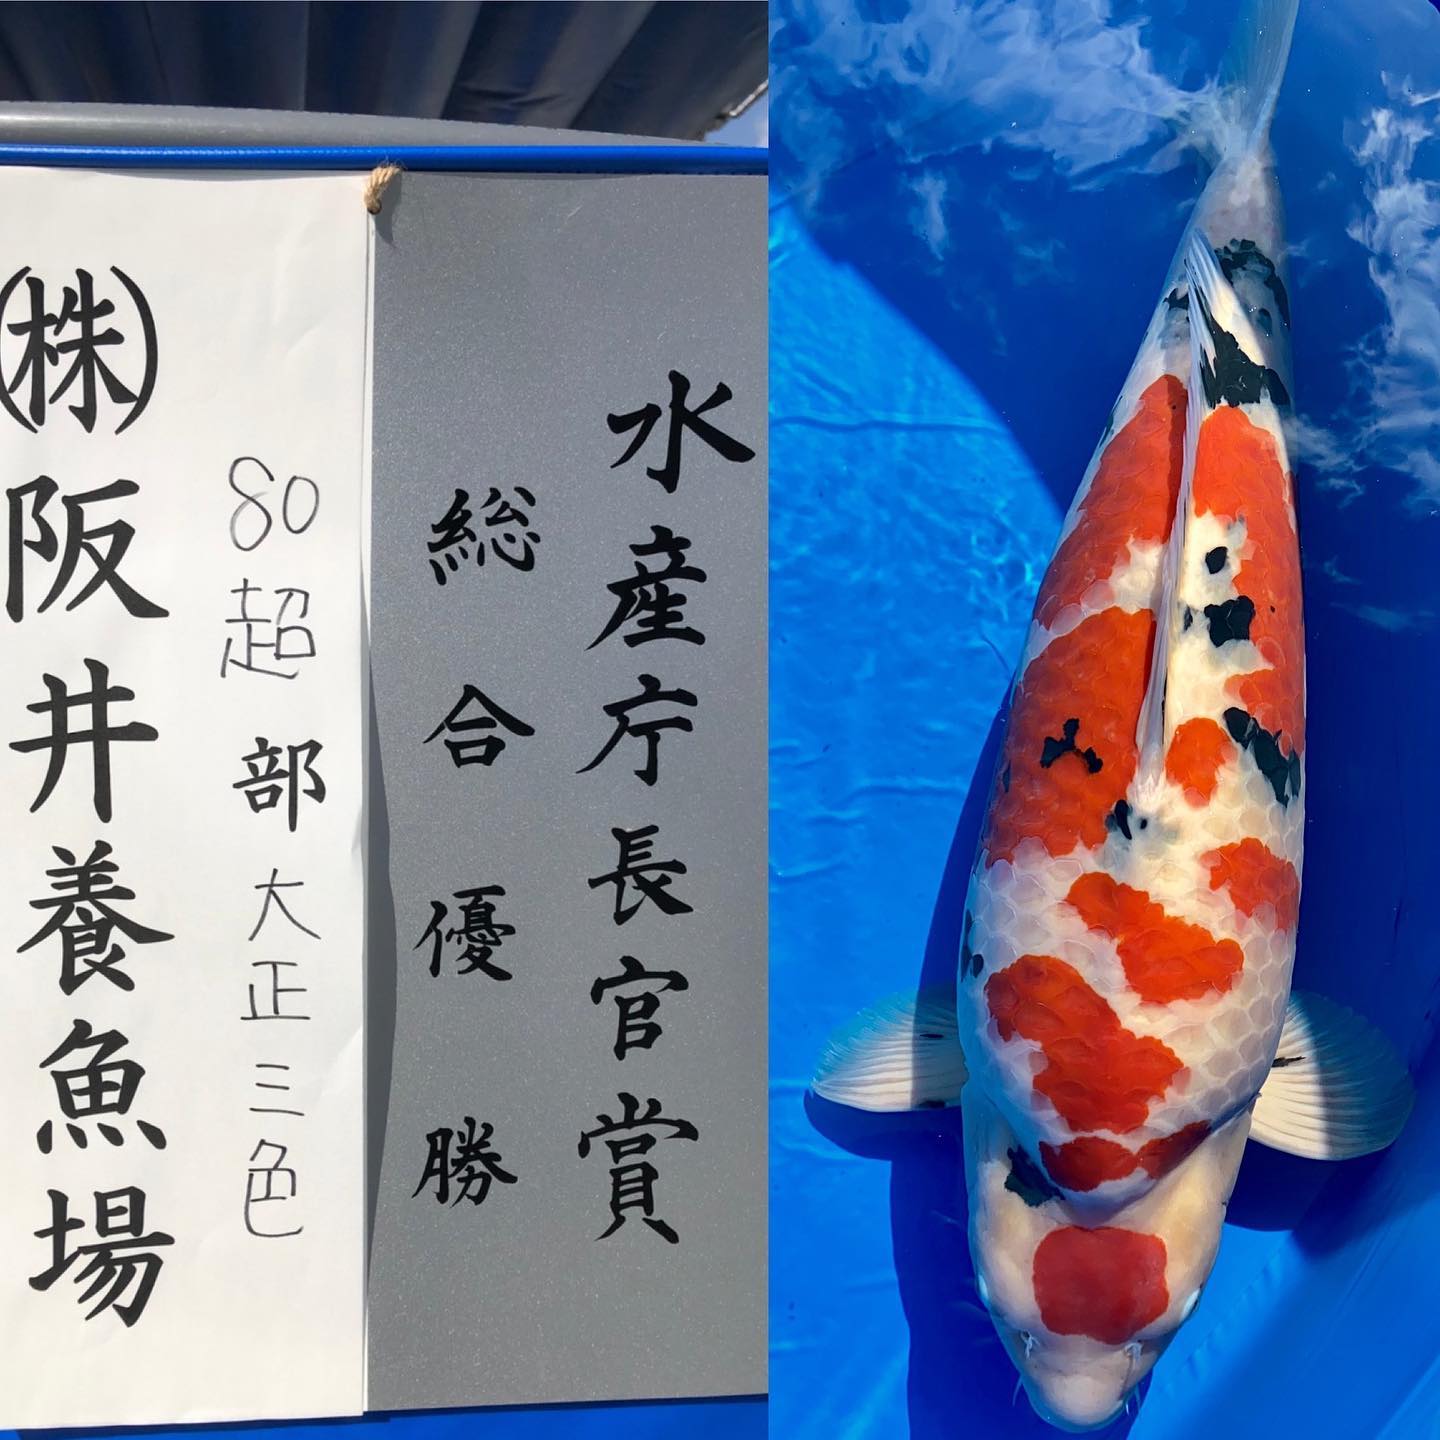 水産庁長官賞
総合優勝
80超部大正三色
㈱阪井養魚場